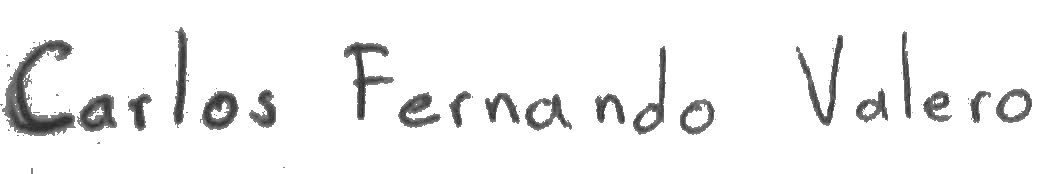 Carlos Fernando Valero